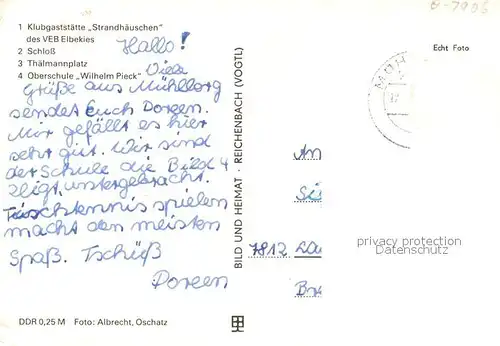 1 Klubgaststätte „Strandhäuschen"
des VEB Elbekies
2 Schloß
3 Thälmannplatz
4 Oberschule „Wilhelm Pieck"
Hallo!
Viele
Grüße aus Mühlberg
sendet Euch Doreen.
Mir gefällt es hier
sehr gut. Wir sind
der Schule die Bild 4
zeigt, untergebracht.
Tischtennis spielen
macht den meisten
Spaß. Tschüß
Doreen
DDR 0,25 M Foto: Albrecht, Oschatz
BILD UND HEIMAT · REICHENBACH (VOGTL)
Echt Foto
MÜH
An
7812
privacy protection
Datenschutz